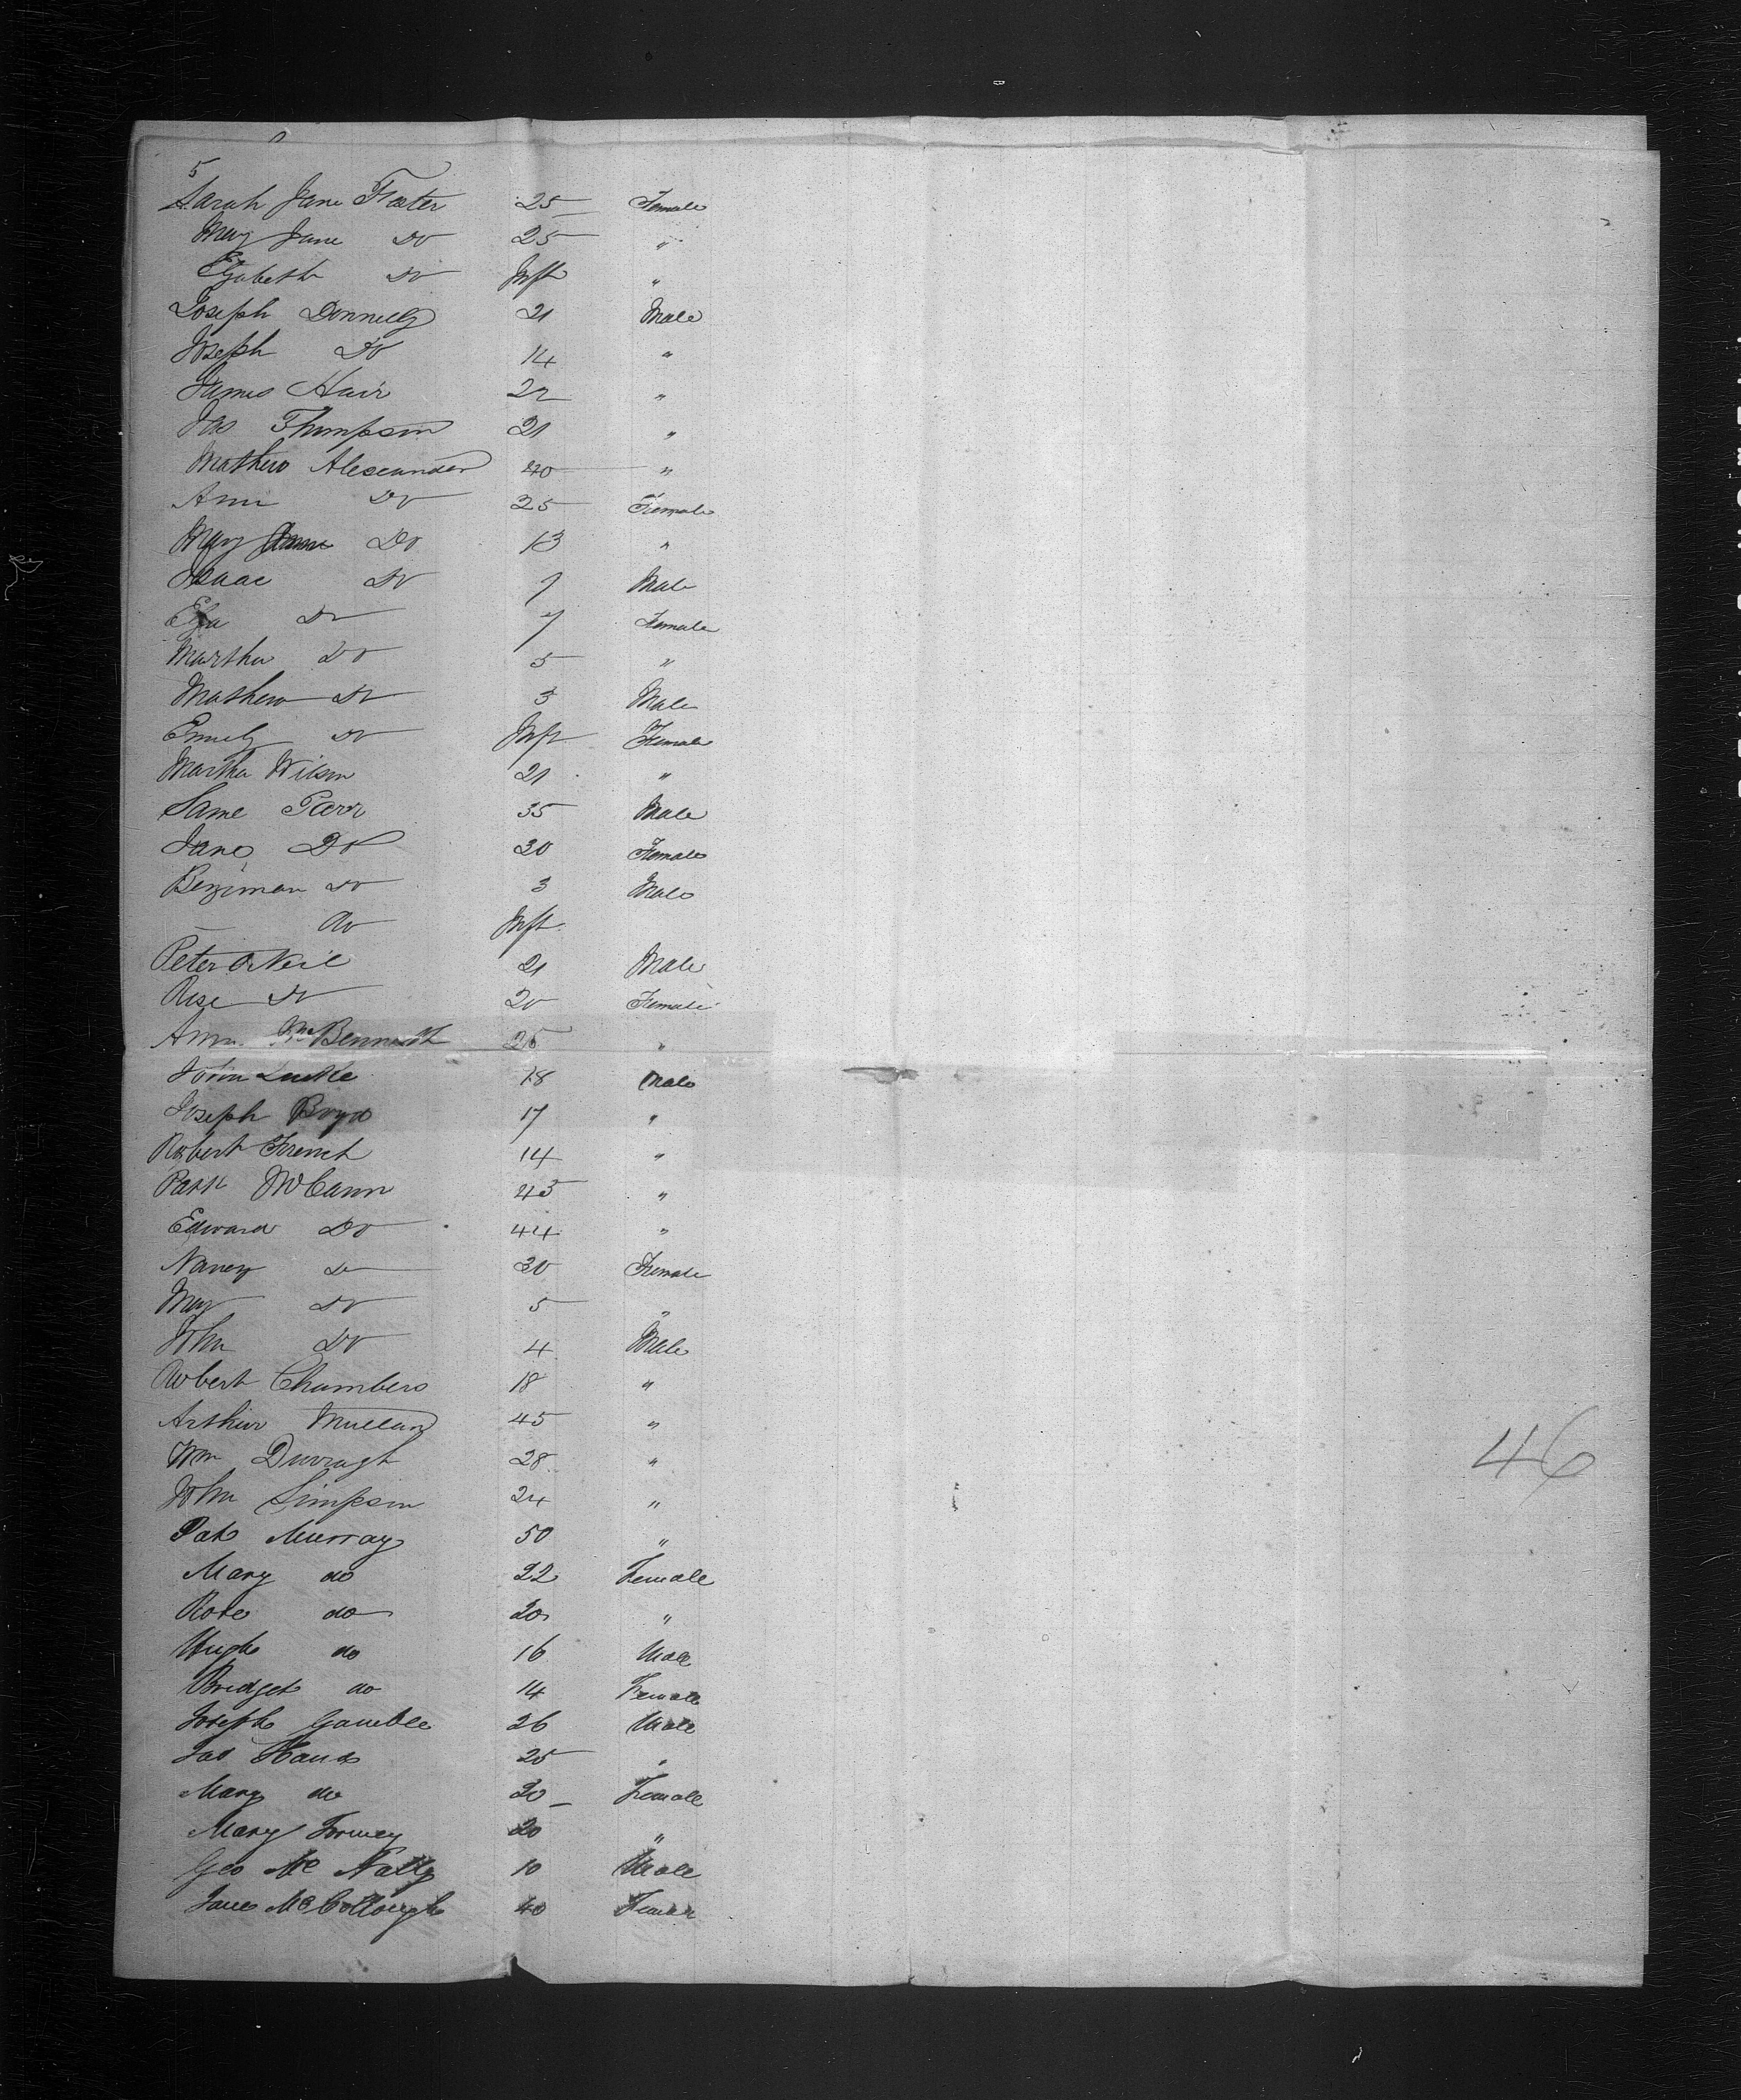 5
Sarah Jane Foster 25 Female
Mary Jane Do 25 "
Elizabeth Do Inft "
Joseph Donnelly 21 Male
Joseph Do 14 "
James Hair 22 "
Jas Thompson 21 "
Mathew Alexander 40 "
Ann Do 25 Female
Mary Do 13 "
Isaac Do 9 Male
Eliza Do 7 Female
Martha Do 5 "
Mathew Do 3 Male
Emily Do Inft Female
Martha Wilson 21 "
Same Parr 35 Male
Jane Do 30 Female
Benjiman Do 3 Male
— Do Inft
Peter O'Neil 21 Male
Rose Do 20 Female
Ann 25 "
John 18 Male
Joseph Boyd 17 "
Robert French 14 "
Patk McCann 45 "
Edward Do 44 "
Nancy Do 30 Female
Mary Do 5 "
John Do 4 Male
Robert Chambers 18 "
Arthur Mullan 45 "
Wm Durragh 28 "
John Simpson 24 "
Pat Murray 50 "
Mary do 22 Female
Rose do 20 "
Hugh do 16 Male
Bridget do 14 Female
Joseph Gamble 26 Male
Jas 25 "
Mary do 30 Female
Mary 20 "
Geo Mc Nally 10 Male
Jane McCollough 40 Female
46